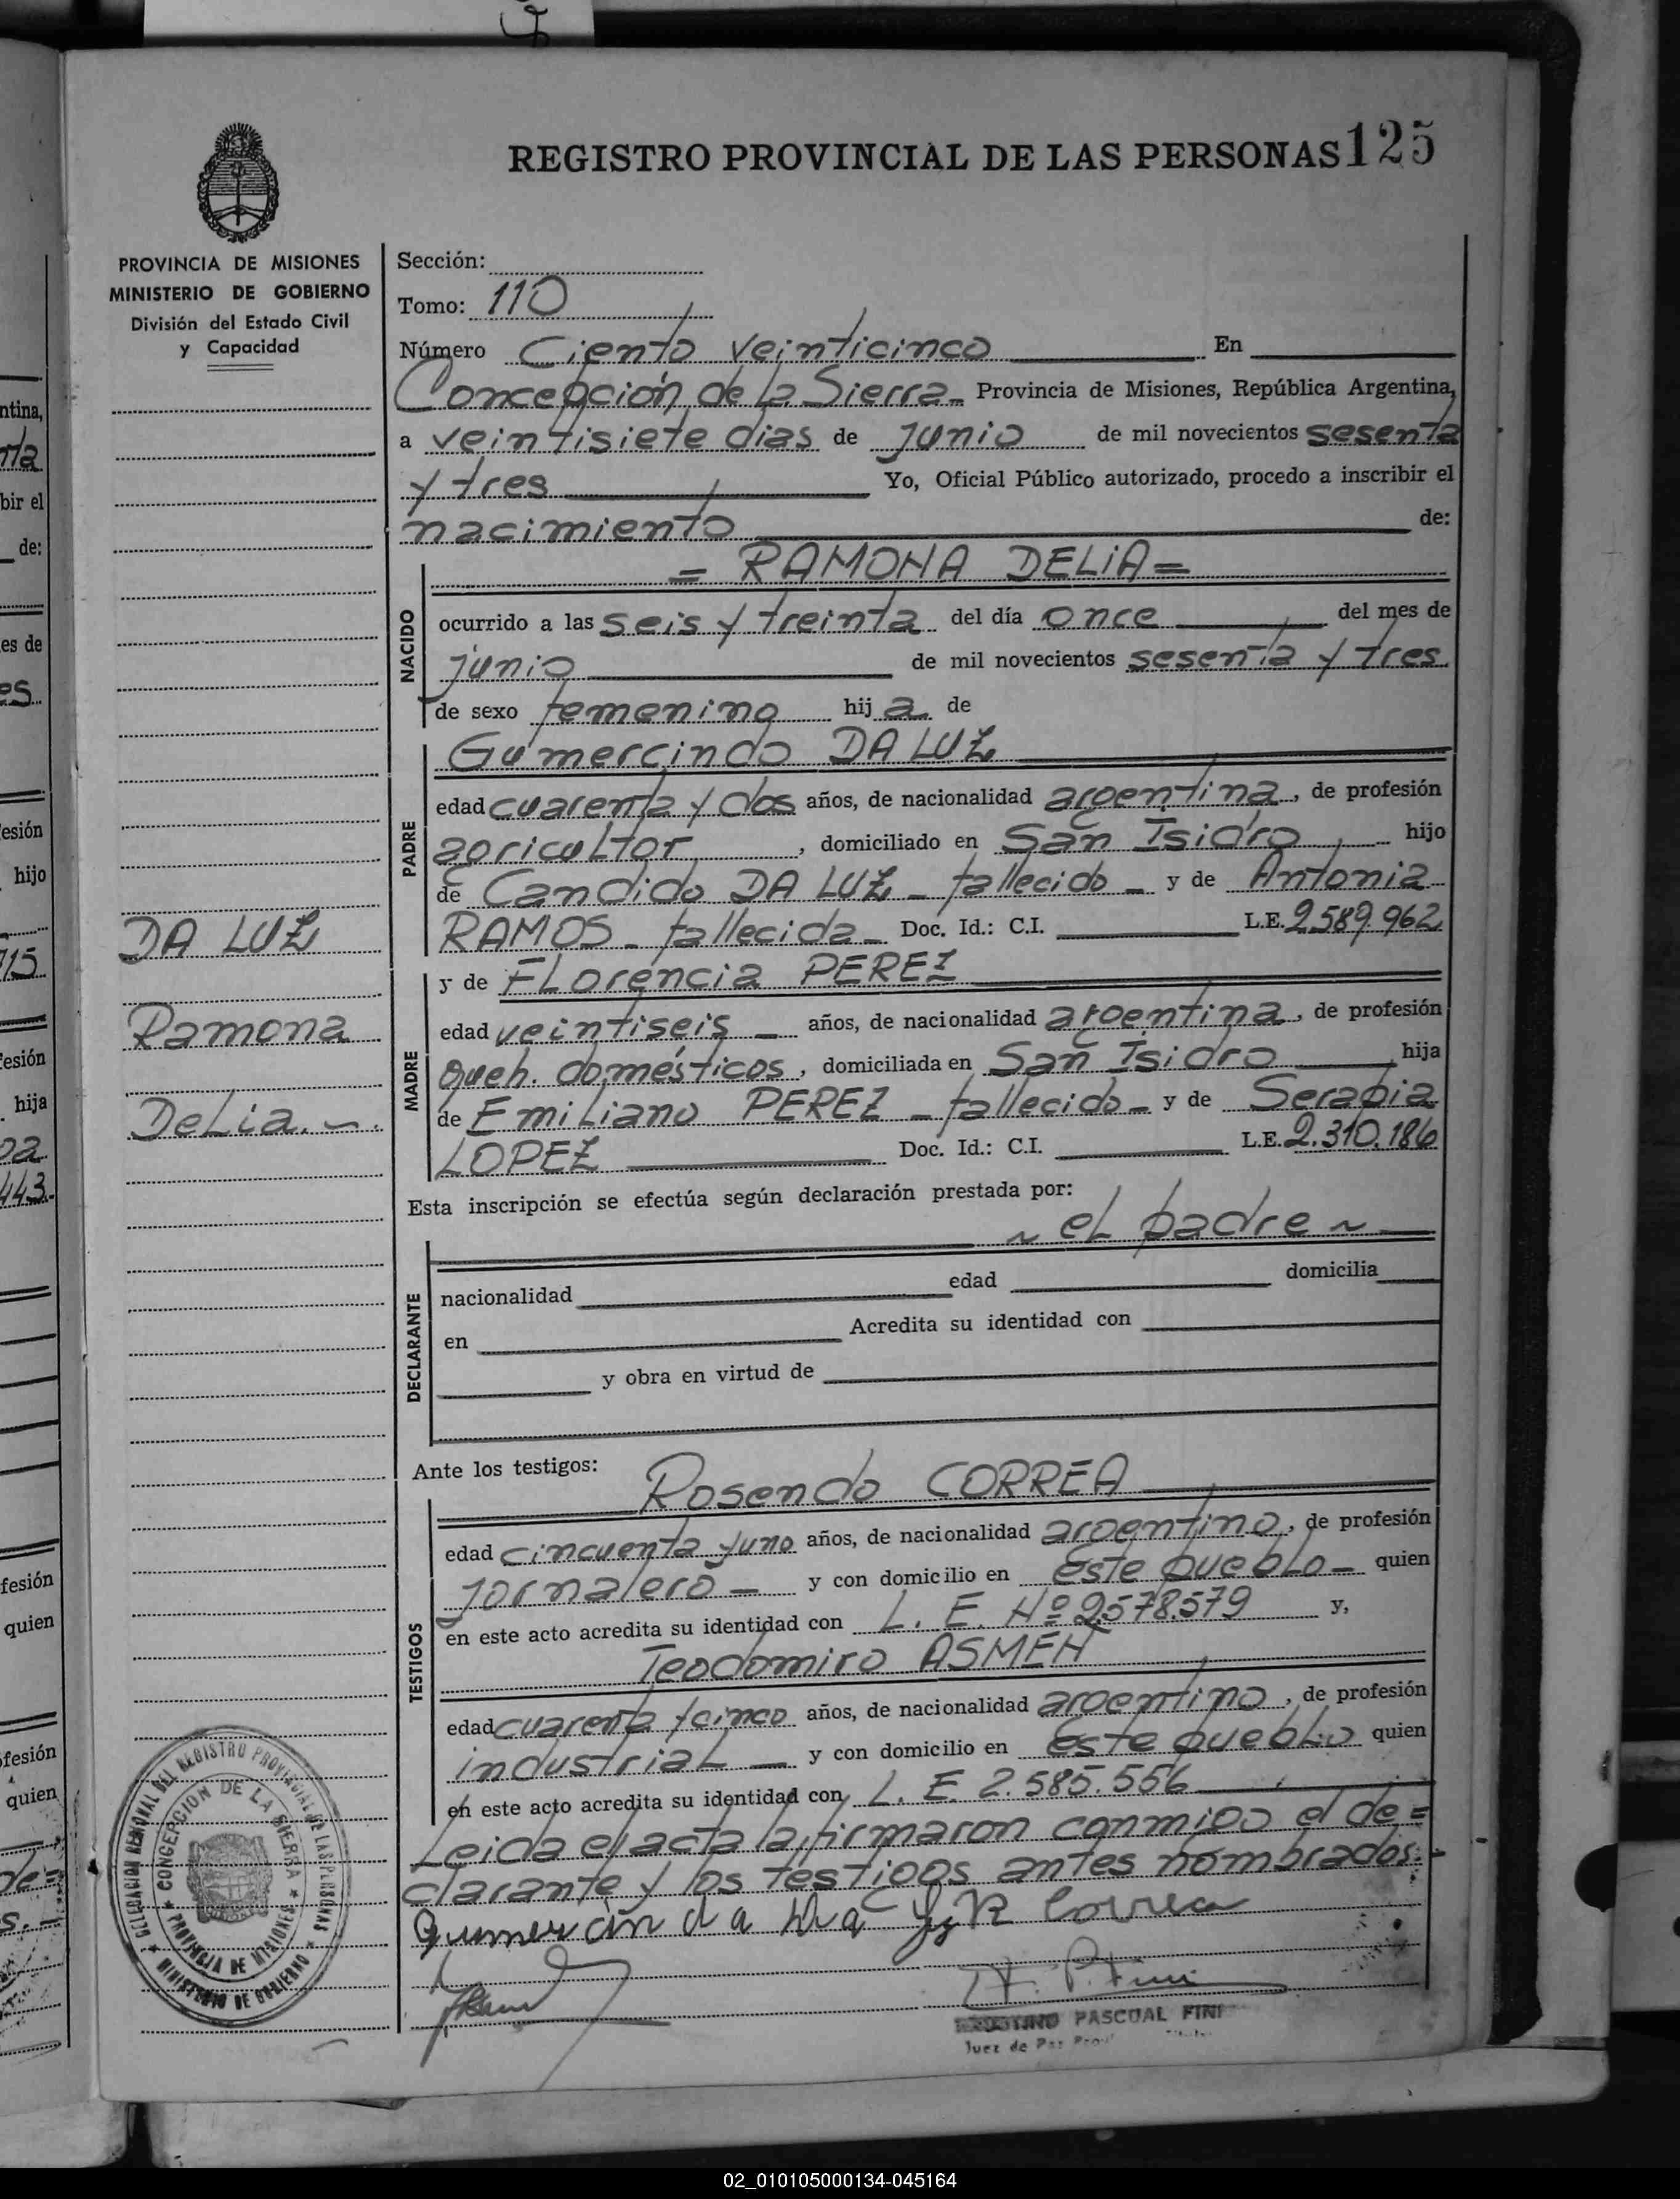 REGISTRO PROVINCIAL DE LAS PERSONAS 125
PROVINCIA DE MISIONES
MINISTERIO DE GOBIERNO
División del Estado Civil
y Capacidad
DA LUZ
Ramona
Delia.
Sección:
Tomo: 110
Número Ciento veinticinco En
Concepción de la Sierra Provincia de Misiones, República Argentina,
a veintisiete dias de junio de mil novecientos sesenta
y tres Yo, Oficial Público autorizado, procedo a inscribir el
nacimiento de:
= RAMONA DELIA =
NACIDO
ocurrido a las seis y treinta del día once del mes de
junio de mil novecientos sesenta y tres
de sexo femenino hija de
PADRE
Gumercindo DA LUZ
edad cuarenta y dos años, de nacionalidad argentina, de profesión
agricultor, domiciliado en San Isidro hijo
de Candido DA LUZ - fallecido - y de Antonia
RAMOS - fallecida - Doc. Id.: C.I. L.E. 2.589.962
MADRE
y de Florencia PEREZ
edad veintiseis - años, de nacionalidad argentina, de profesión
queh. domésticos, domiciliada en San Isidro hija
de Emiliano PEREZ - fallecido - y de Serapia
LOPEZ Doc. Id.: C.I. L.E. 2.310.186
Esta inscripción se efectúa según declaración prestada por:
~ el padre ~
DECLARANTE
nacionalidad edad domicilia
en Acredita su identidad con
y obra en virtud de
Ante los testigos:
TESTIGOS
Rosendo CORREA
edad cincuenta y uno años, de nacionalidad argentino, de profesión
jornalero - y con domicilio en este pueblo - quien
en este acto acredita su identidad con L. E. Nº 2578.579 y,
Teodomiro ASMEN
edad cuarenta y cinco años, de nacionalidad argentino, de profesión
industrial - y con domicilio en este pueblo quien
en este acto acredita su identidad con L. E. 2.585.556
Leida el acta la firmaron conmigo el de=
clarante y los testigos antes nombrados.-
R Correa
PASCUAL FINI
Juez de Paz
DELEGACION REGIONAL DEL REGISTRO PROVINCIAL DE LAS PERSONAS
CONCEPCION DE LA SIERRA
PROVINCIA DE MISIONES
MINISTERIO DE GOBIERNO
02_010105000134-045164